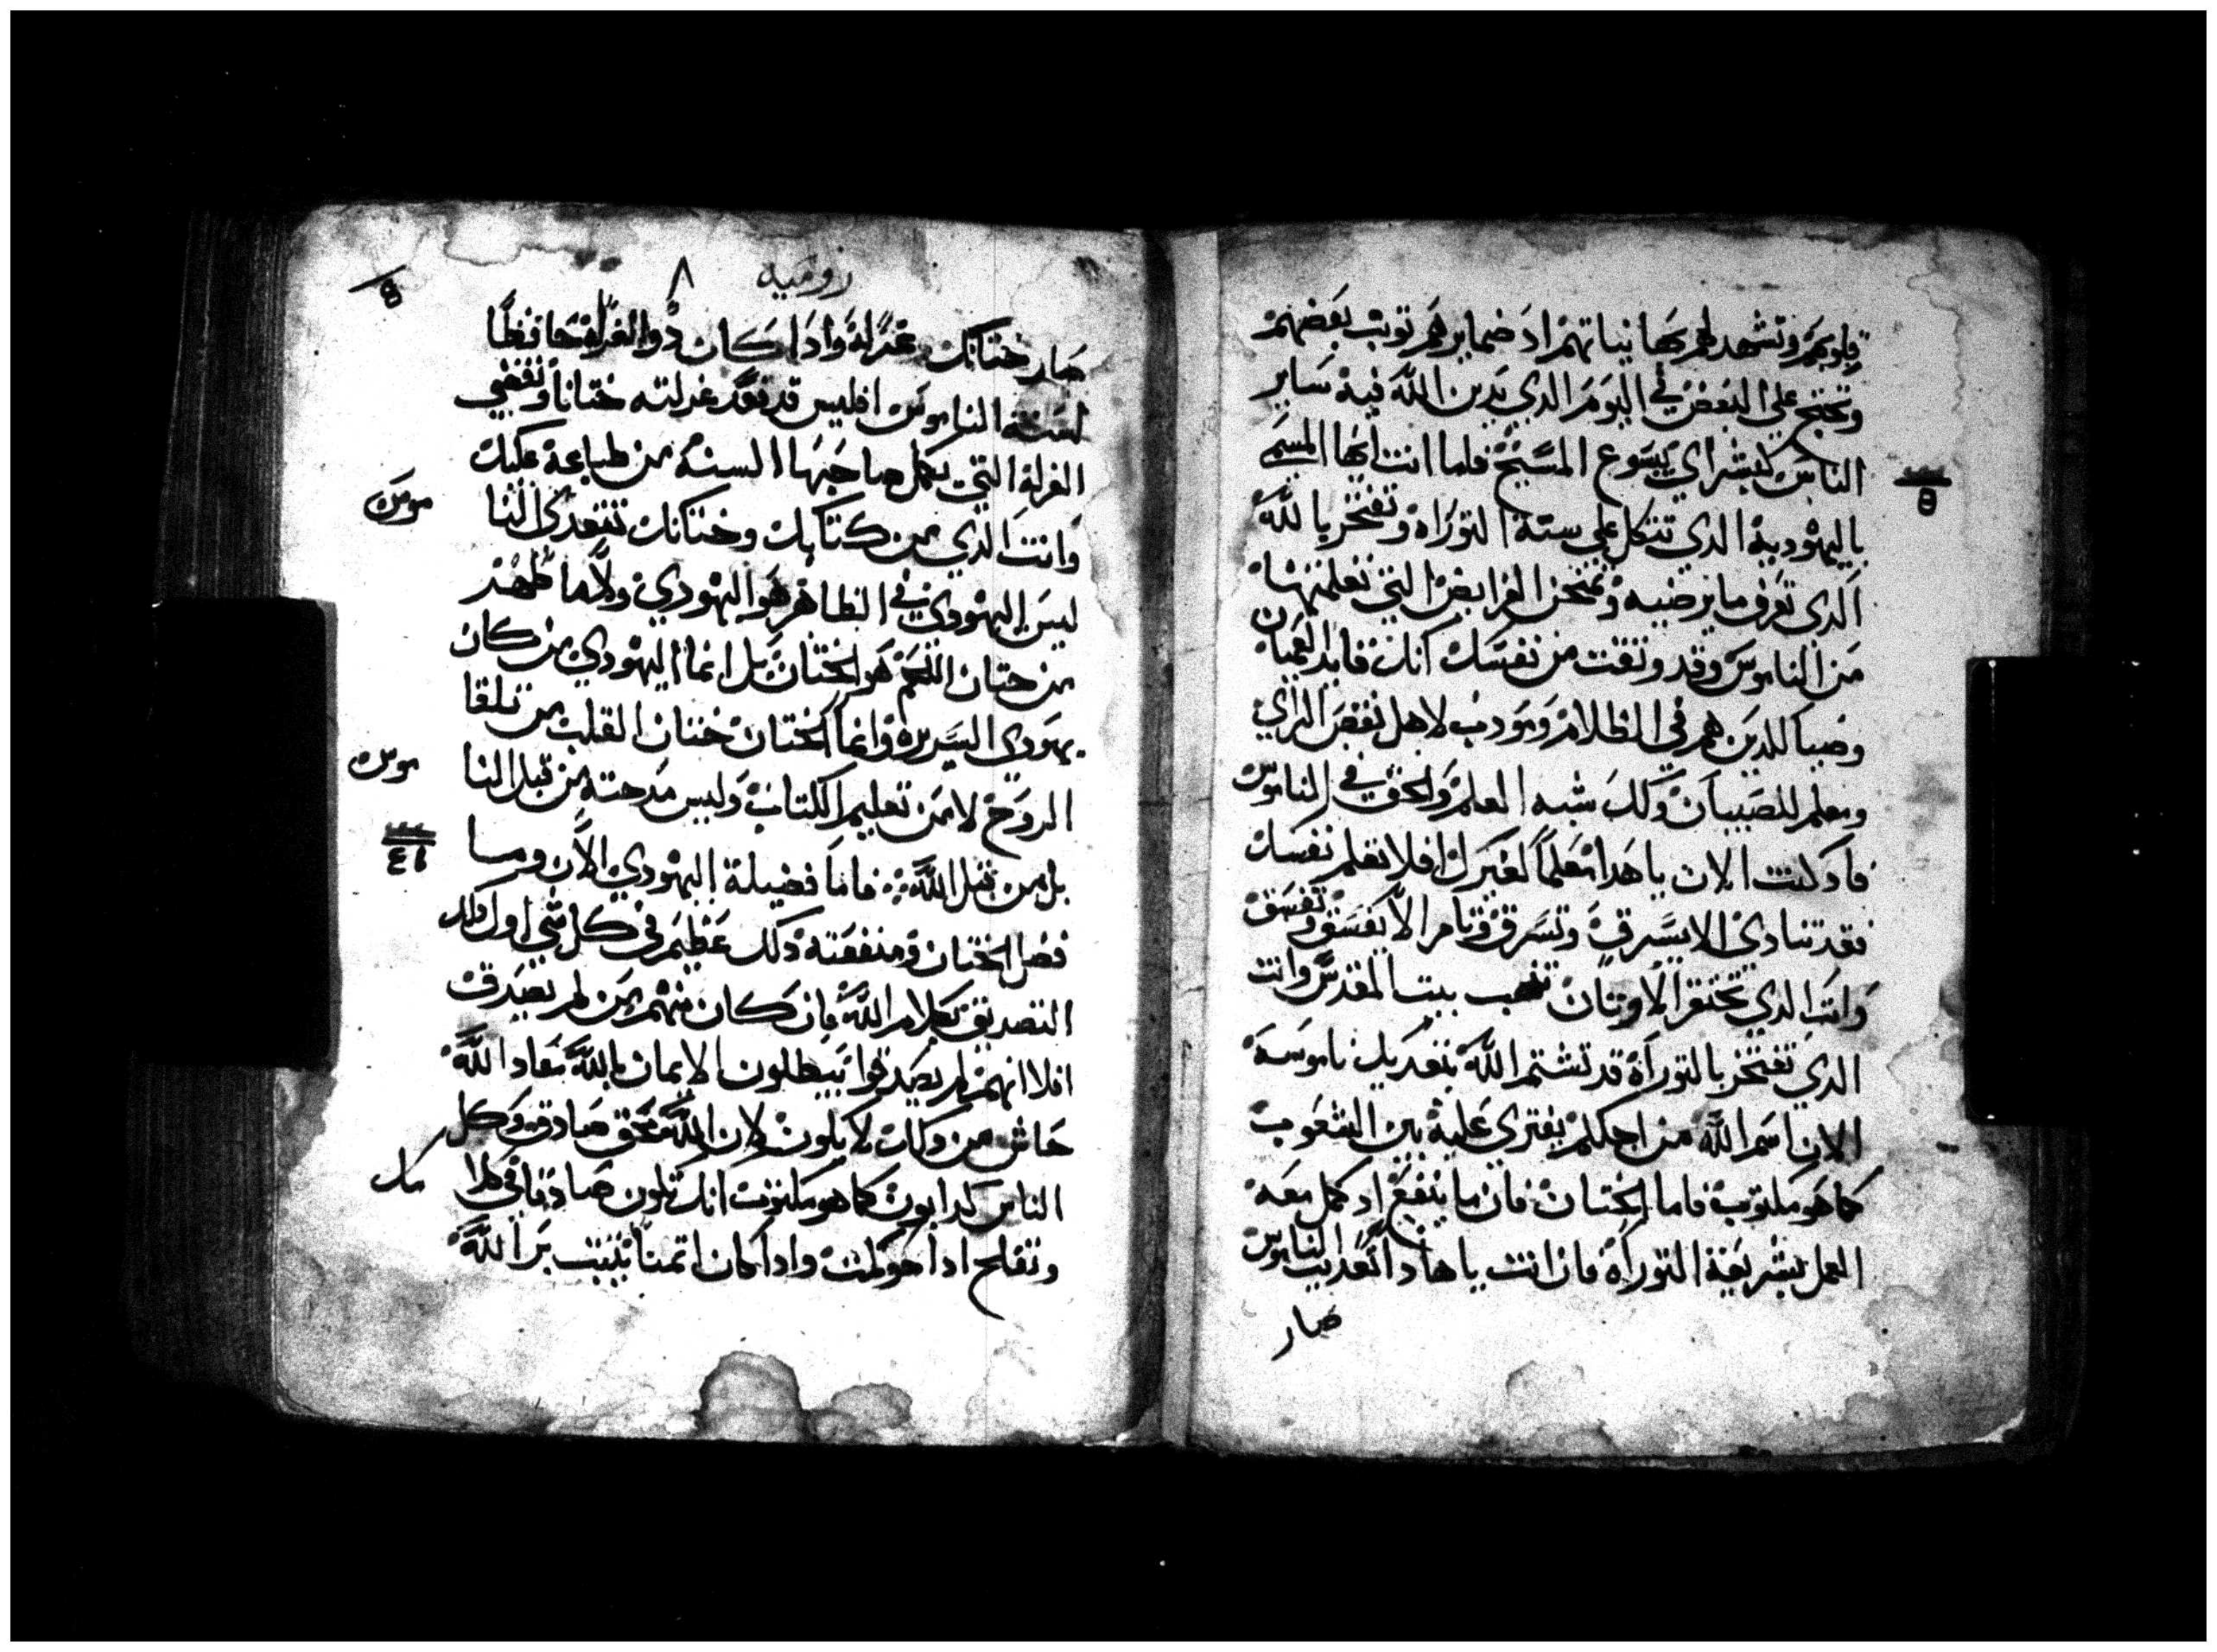 قلوبهم وتشهد لهم بها نياتهم اذ ضمايرهم توبب بعضهم
وتحتج علي البعض في اليوم الذي يدين الله فيه ساير
الناس كبشراي يسوع المسيح فاما انت ايها المسمى
باليهوديه الذي تتكل علي سنة التوراه وتفتخر بالله
الذي تعرف ما يرضيه وتمتحن الفرايض التي تعلمتها
من الناموس وقد وثقت من نفسك انك قايد العميان
وضياً للدين هم في الظلام ومودب لاهل نقص الراي
ومعلم للصبيان ولك شبه العلم والحق في الناموس
فاد كنت الان ياهدا معلماً لغيرك افلا تعلم نفسك
فقد تنادي الا يسرق وتسرق وتامر الا يفسق وتفسق
وانت الذي تحتقر الاوتان تنهب بيت المقدس وانت
الدي تفتخر بالتوراة قد تشتم الله بتعديك ناموسه
الان اسم الله من اجلكم يفتري عليه بين الشعوب
كما هو مكتوب فاما الختان فان ما ينفع اد كمل معه
العمل بشريعة التوراة فان انت ياهادا تتعديت الناموس
صار
روميه ٨
صار ختانك غرله وادا كان دوا الغرله حافظاً
لسنة الناموس افليس قد تعد غرلته ختاناً وتقضي
الغرلة التي يكمل صاحبها السنه من طباعه عليك
وانت الدي من كتابك وختانك تتعدى النا
موس
ليس اليهودي في الظاهر هو اليهودي ولا ما ظهر
من ختان اللحم هو الختان بل انما اليهودي من كان
يهودي السريره وانما الختان ختان القلب من تلقا
الروح لا من تعليم الكتاب وليس مدحته من قبل النا
موس
بل من قبل الله فاما فضيلة اليهودي الان وما
فضل الختان ومنفعته دلك عظيم في كل شي اول دلك
التصديق بكلام الله فان كان منهم من لم يصدق
افلا انهم لم يصدقوا يبطلون الايمان بالله معاد الله
حاش من دلك لا يكون لان الله محق صادق وكل
الناس كدابون كما هو مكتوب انك تكون صادقا في كلا
مك
وتفلح ادا حوكمت وادا كان اتمنا يثبت بر الله